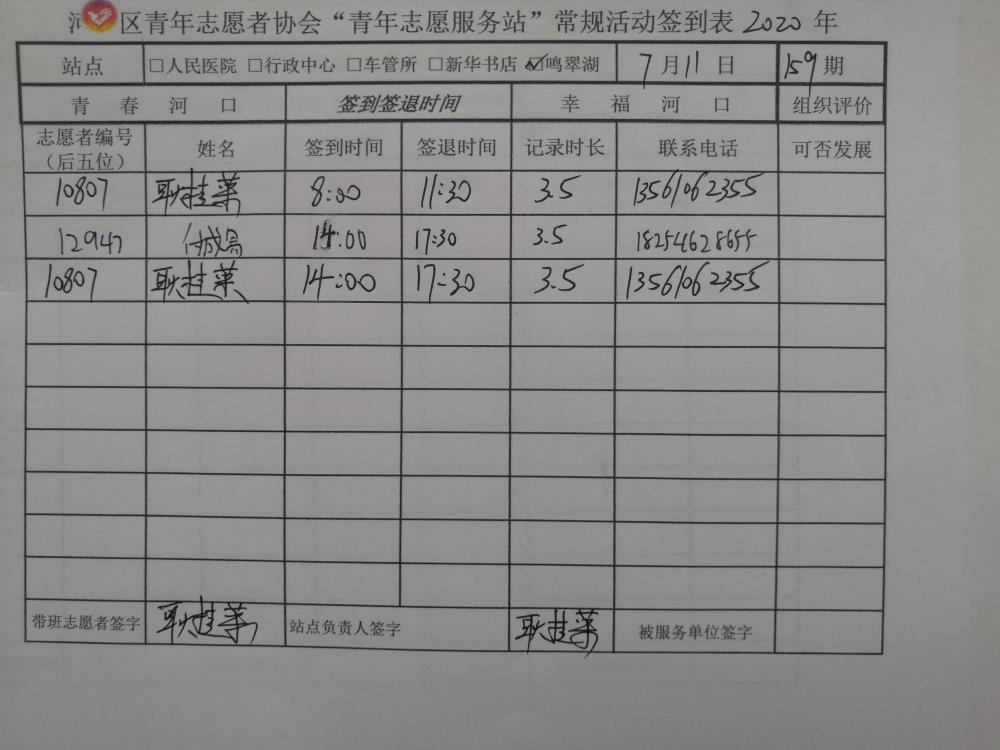 河区青年志愿者协会“青年志愿服务站”常规活动签到表 2020 年
站点 □人民医院 □行政中心 □车管所 □新华书店 ☑鸣翠湖 7月11日 159期
青春河口 签到签退时间 幸福河口 组织评价
志愿者编号（后五位） 姓名 签到时间 签退时间 记录时长 联系电话 可否发展
10807 耿桂菜 8:00 11:30 3.5 13561062355
12947 14:00 17:30 3.5 18254628655
10807 耿桂菜 14:00 17:30 3.5 13561062355
带班志愿者签字 耿桂菜 站点负责人签字 耿桂菜 被服务单位签字